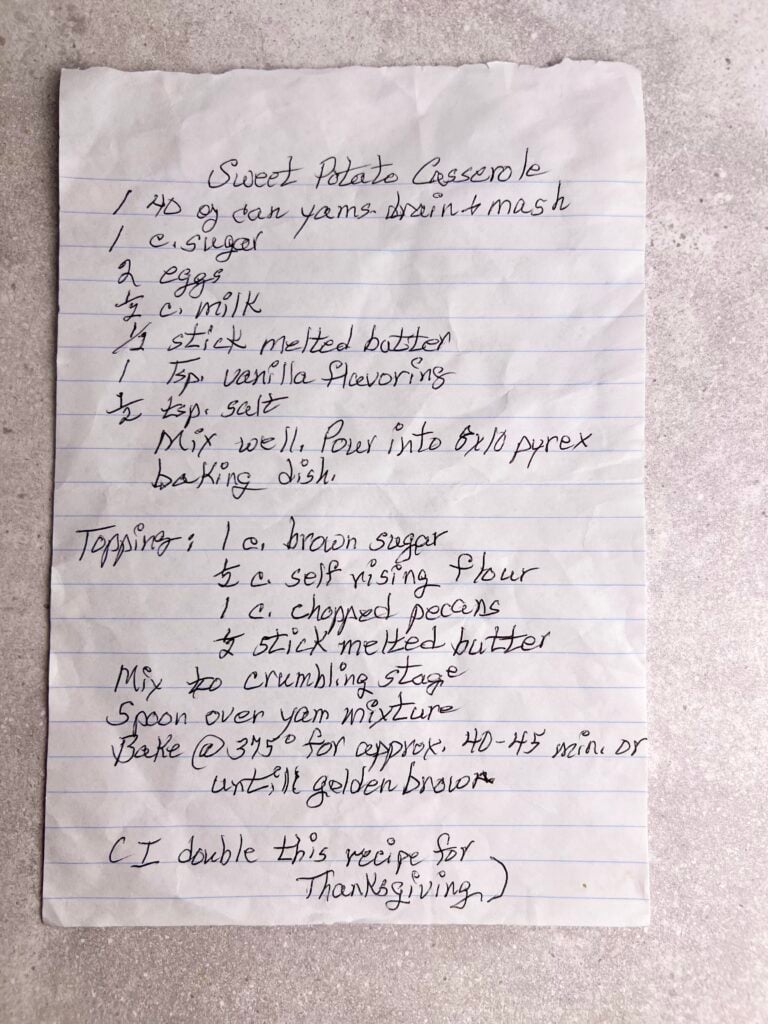 Sweet Potato Casserole
1 40 oz can yams drain & mash
1 c. sugar
2 eggs
½ c. milk
½ stick melted butter
1 Tsp. vanilla flavoring
½ tsp. salt
Mix well. Pour into 8x10 pyrex
baking dish.
Topping: 1 c. brown sugar
½ c. self rising flour
1 c. chopped pecans
½ stick melted butter
Mix to crumbling stage
Spoon over yam mixture
Bake @ 375° for approx. 40-45 min. or
untill golden brown
(I double this recipe for
Thanksgiving)